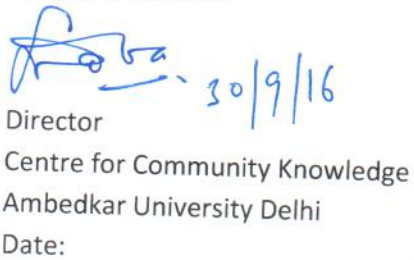 30/9/16
Director
Centre for Community Knowledge
Ambedkar University Delhi
Date: